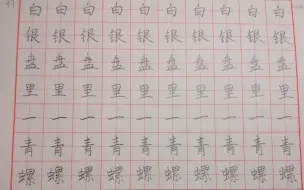 白白白白白白白白白
银银银银银银银银银
盘盘盘盘盘盘盘盘盘
里里里里里里里里里
一一一一一一一一一
青青青青青青青青青
螺螺螺螺螺螺螺螺螺